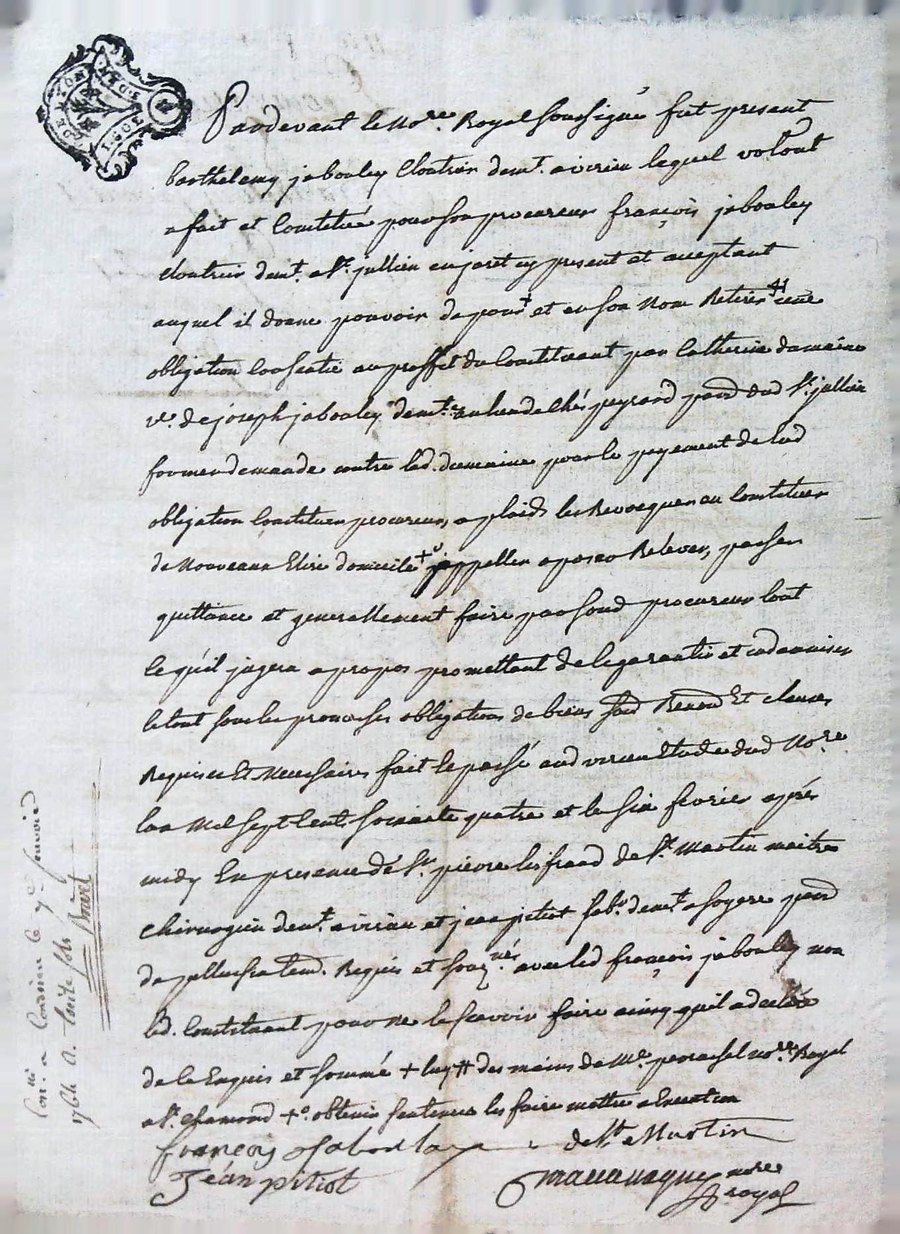 Pardevant le No.re Royal soussigné fut present
barthelemy jabouley Cloutrier dem.t a virieu lequel vol.t
a fait et Constitué pour son procureur françois jabouley
Cloutrier dem.t a S.t jullien en jaret cy present et acceptant
auquel il donne pouvoir de pour + et en son Nom Retirer # une
obligation Consentie au proffit du Constituant par Catherine damaine
v.e de joseph jabouley dem.te au lieu de Chés peyrard par.d dud S.t jullien
former demande contre lad. damaine pour le payement de lad
obligation Constituer procureurs a plaids les Revocquer ou Constituer
de Nouveaux Elire domicile +o appeller opposer Relever, passer
quittance et generallement faire par sond procureur tout
ce qu'il jugera a propos promettant de le garantir et indamniser
le tout sous les promesses obligations de biens Renond Et clauses
Requises Et Necessaires fait et passé aud virieu Etude dud No.re
l'an Mil Sept Cent Soixante quatre et le six fevrier après
midy En presence de S.r pierre de S.t Martin maitre
Chirurgien dem.t a virieu et jean pitiot fab.r dem.t a par.d
de Requis et sous.nés avec led françois jabouley non
led. Constituant pour ne le scavoir faire ainsy qu'il a declaré
de ce Enquis et sommé + luy # des mains de M.e No.re Royal
a S.t Chamond +o obtenir sentences les faire mettre a Execution
françois Jaboulay de St Martin
Jean pitiot nore
royal
Con.llé a Condrieu le 7e fevrier
1764 R. treize sols